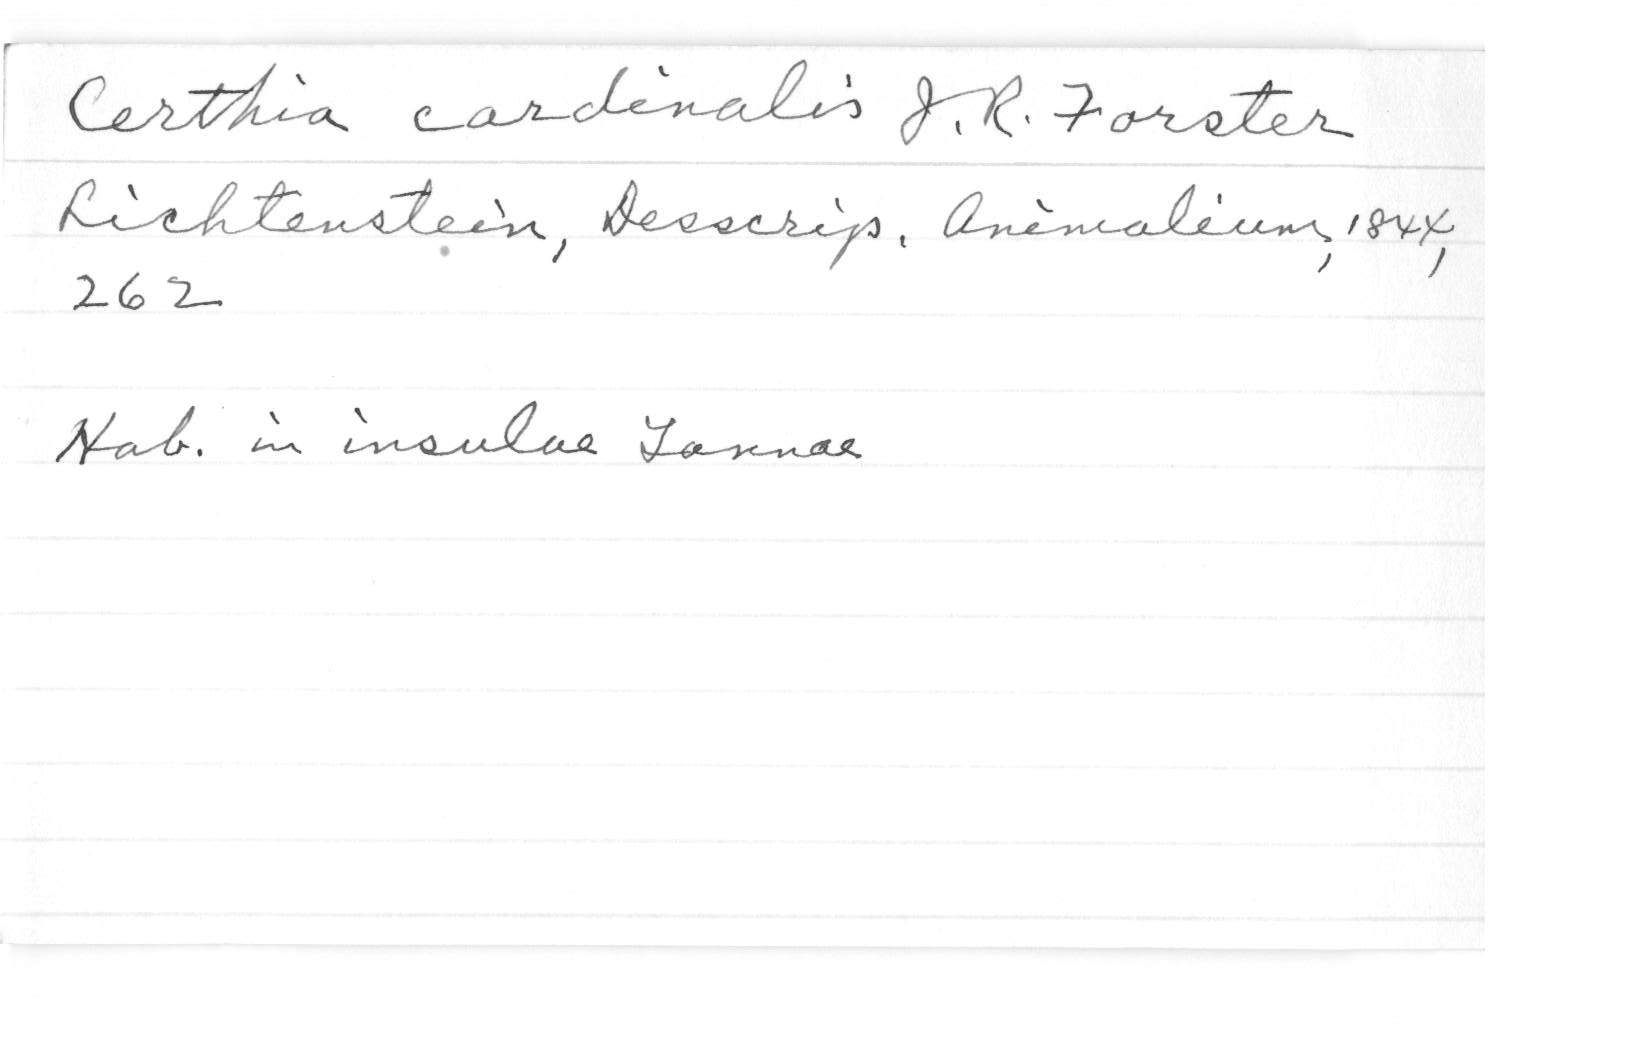 Certhia cardinalis J.R. Forster
Lichtenstein, Desscrip. Animalium, 1844,
262
Hab. in insulae Tannae